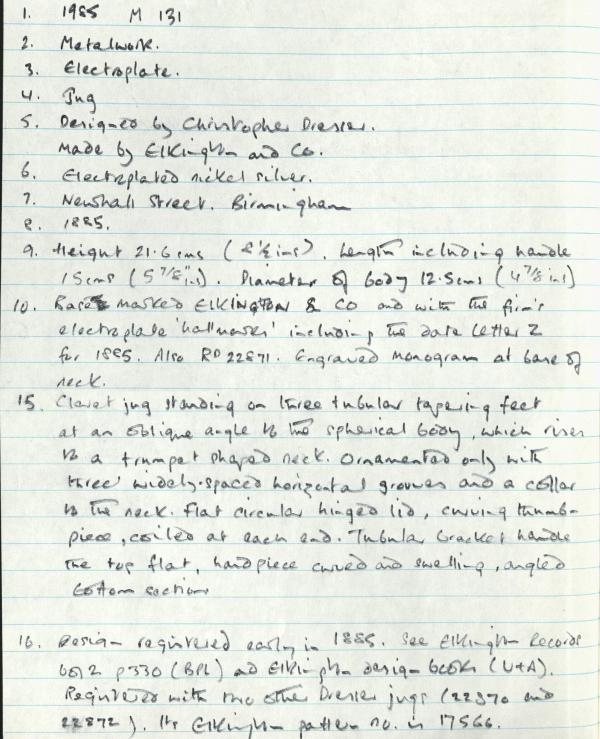 1. 1985 M 131
2. Metalwork.
3. Electroplate.
4. Jug
5. Designed by Christopher Dresser.
Made by Elkington and Co.
6. Electroplated nickel silver.
7. Newhall Street. Birmingham
8. 1885.
9. Height 21.6 cms (8½ ins). Length including handle
15 cms (5 7/8" ins). Diameter of body 12.5 cms (4 7/8 ins)
10. Base marked ELKINGTON & CO and with the firm's
electroplate 'hallmarks' including the date letter Z
for 1885. Also RD 22871. Engraved monogram at base of
neck.
15. Claret jug standing on three tubular tapering feet
at an oblique angle to the spherical body, which rises
to a trumpet shaped neck. Ornamented only with
three widely-spaced horizontal grooves and a collar
to the neck. Flat circular hinged lid, curving thumb-
piece, coiled at each end. Tubular bracket handle
the top flat, handpiece curved and swelling, angled
bottom section
16. Design registered early in 1885. See Elkington Records
p330 (BPL) and Elkington design books (V+A).
Registered with two other Dresser jugs (22870 and
22872). Its Elkington pattern no. is 17566.